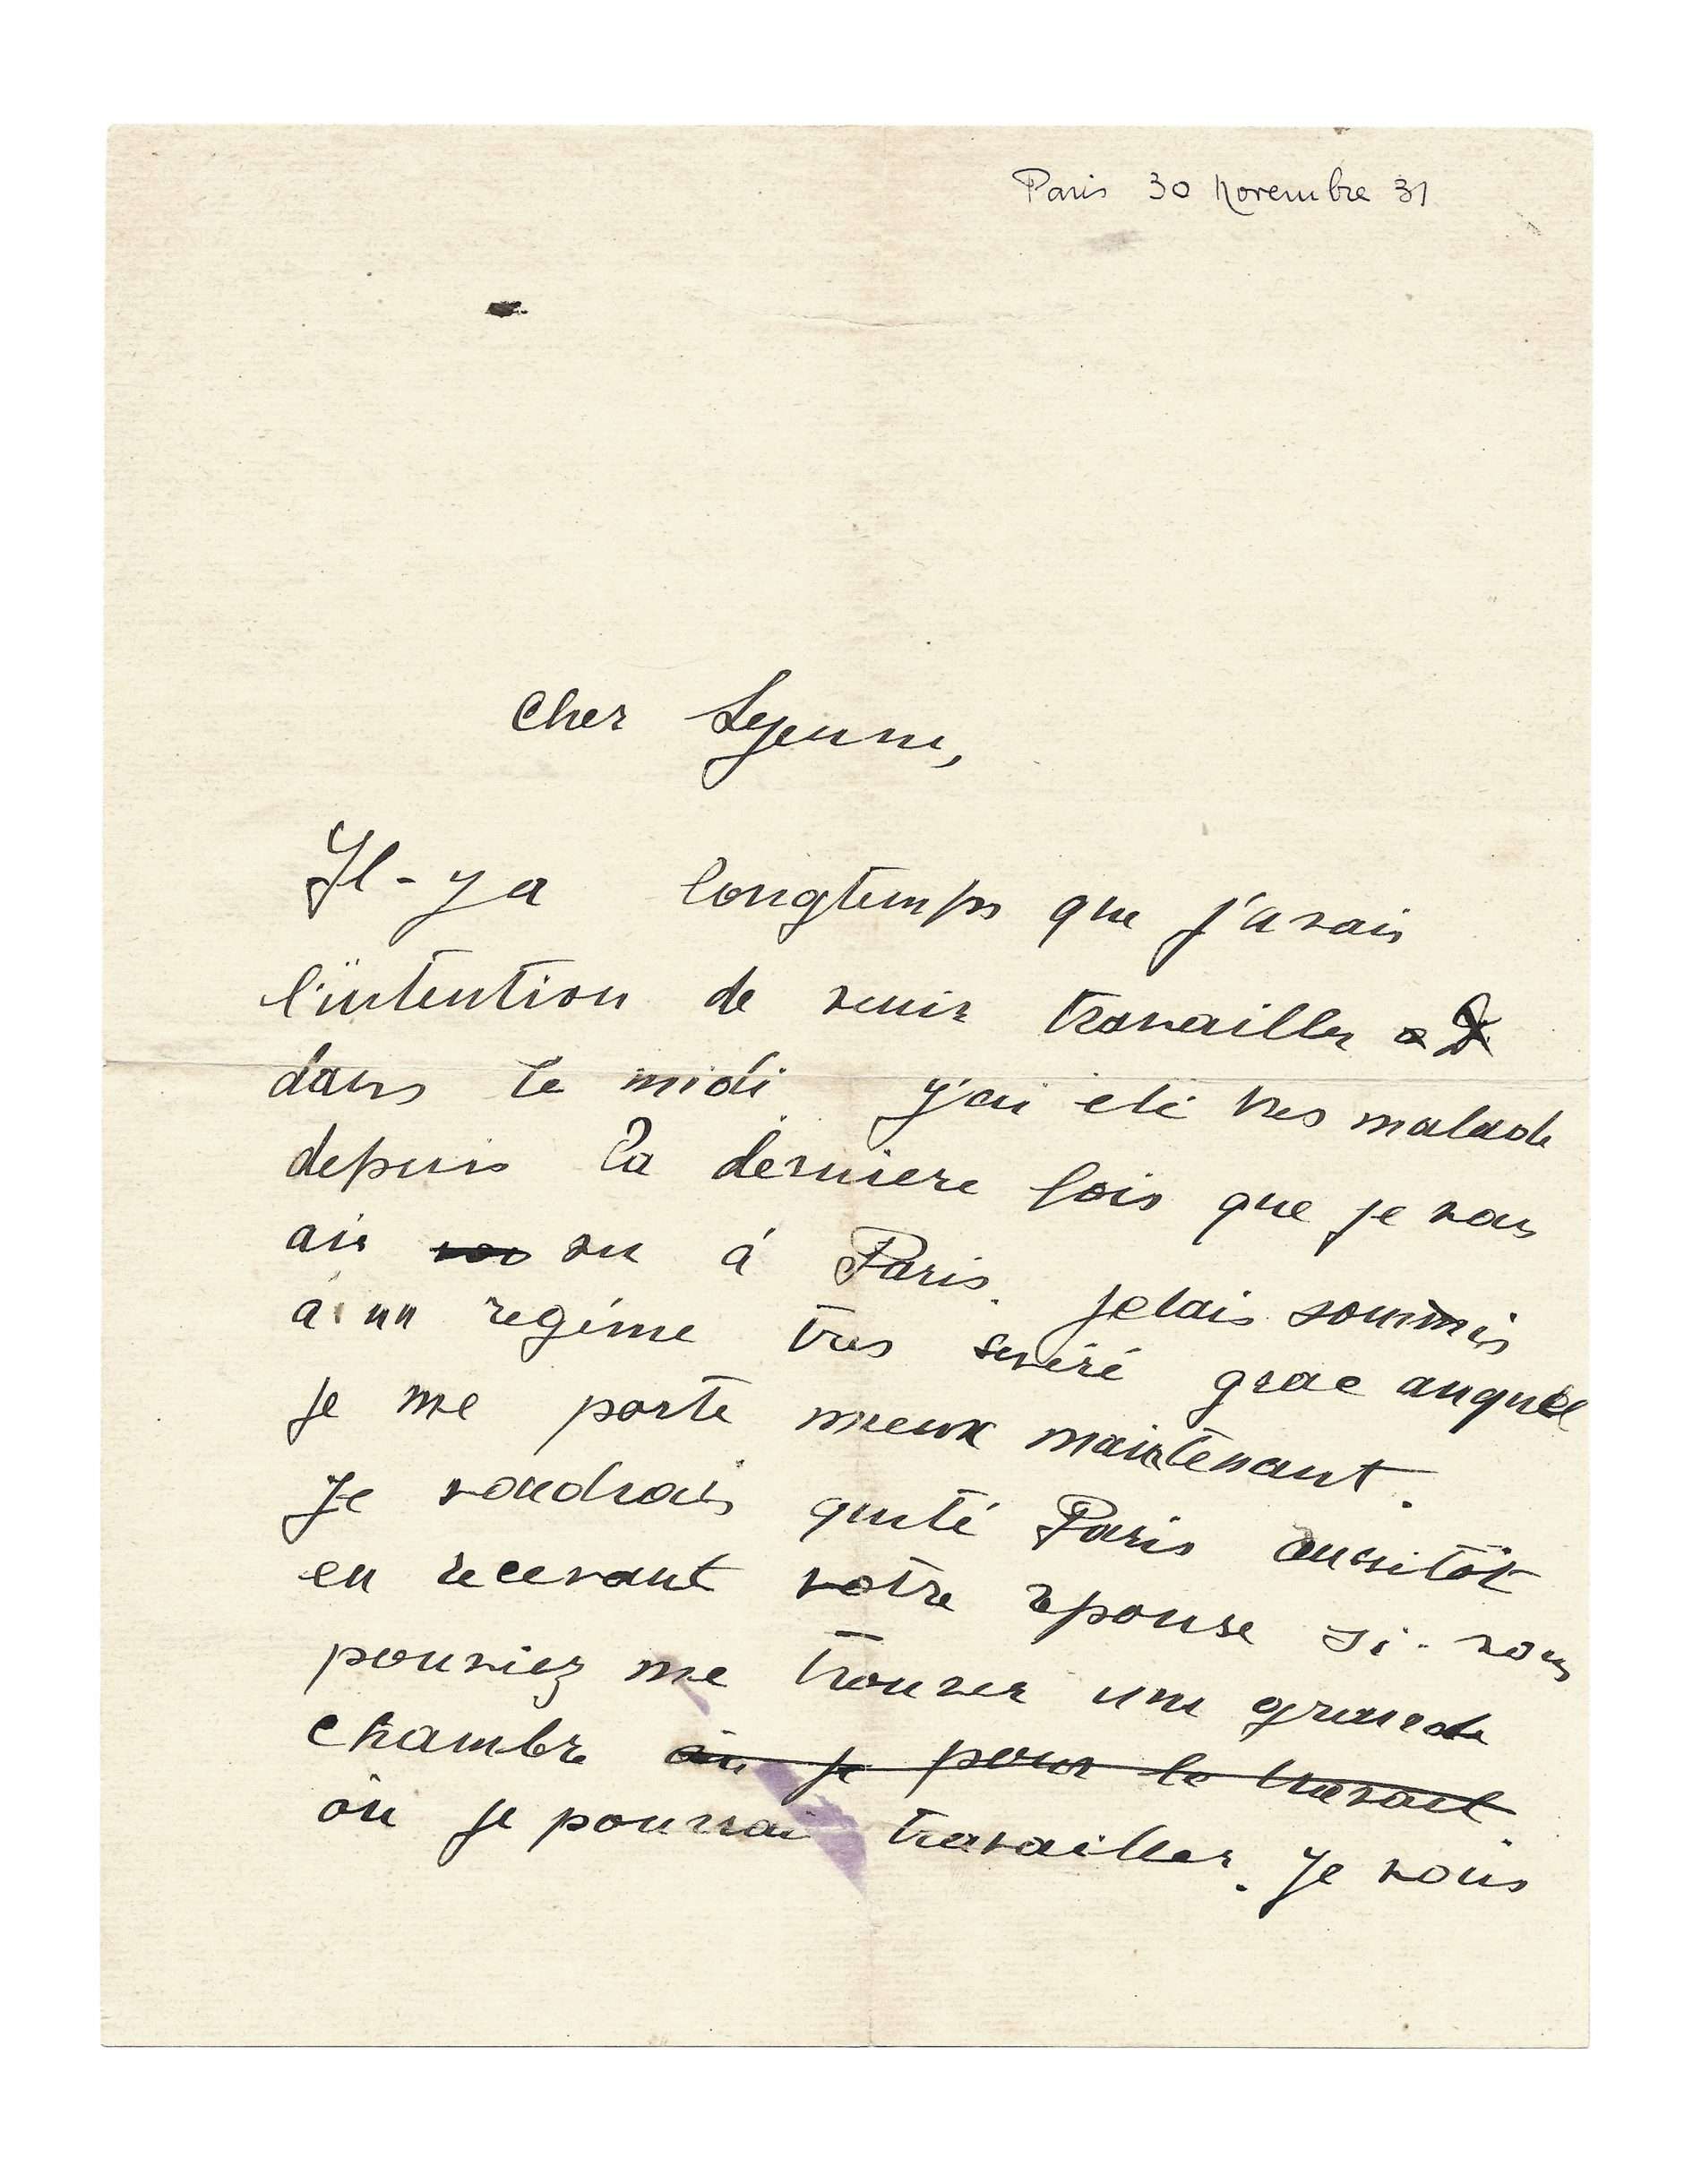 Paris 30 Novembre 31
Cher Lejeune,
Il-y a longtemps que j'avais
l'intention de venir travailler a
dans le midi j'ai eté tres malade
depuis la derniere fois que je vous
ais vu á Paris. jetais soummis
a un regime tres severé grace auquel
je me porte mieux maintenant.
Je voudrais quité Paris aussitôt
en recevant votre reponse si vous
pouviez me trouver une grande
chambre ou je pour le travail.
où je pourrai travailler. Je vous